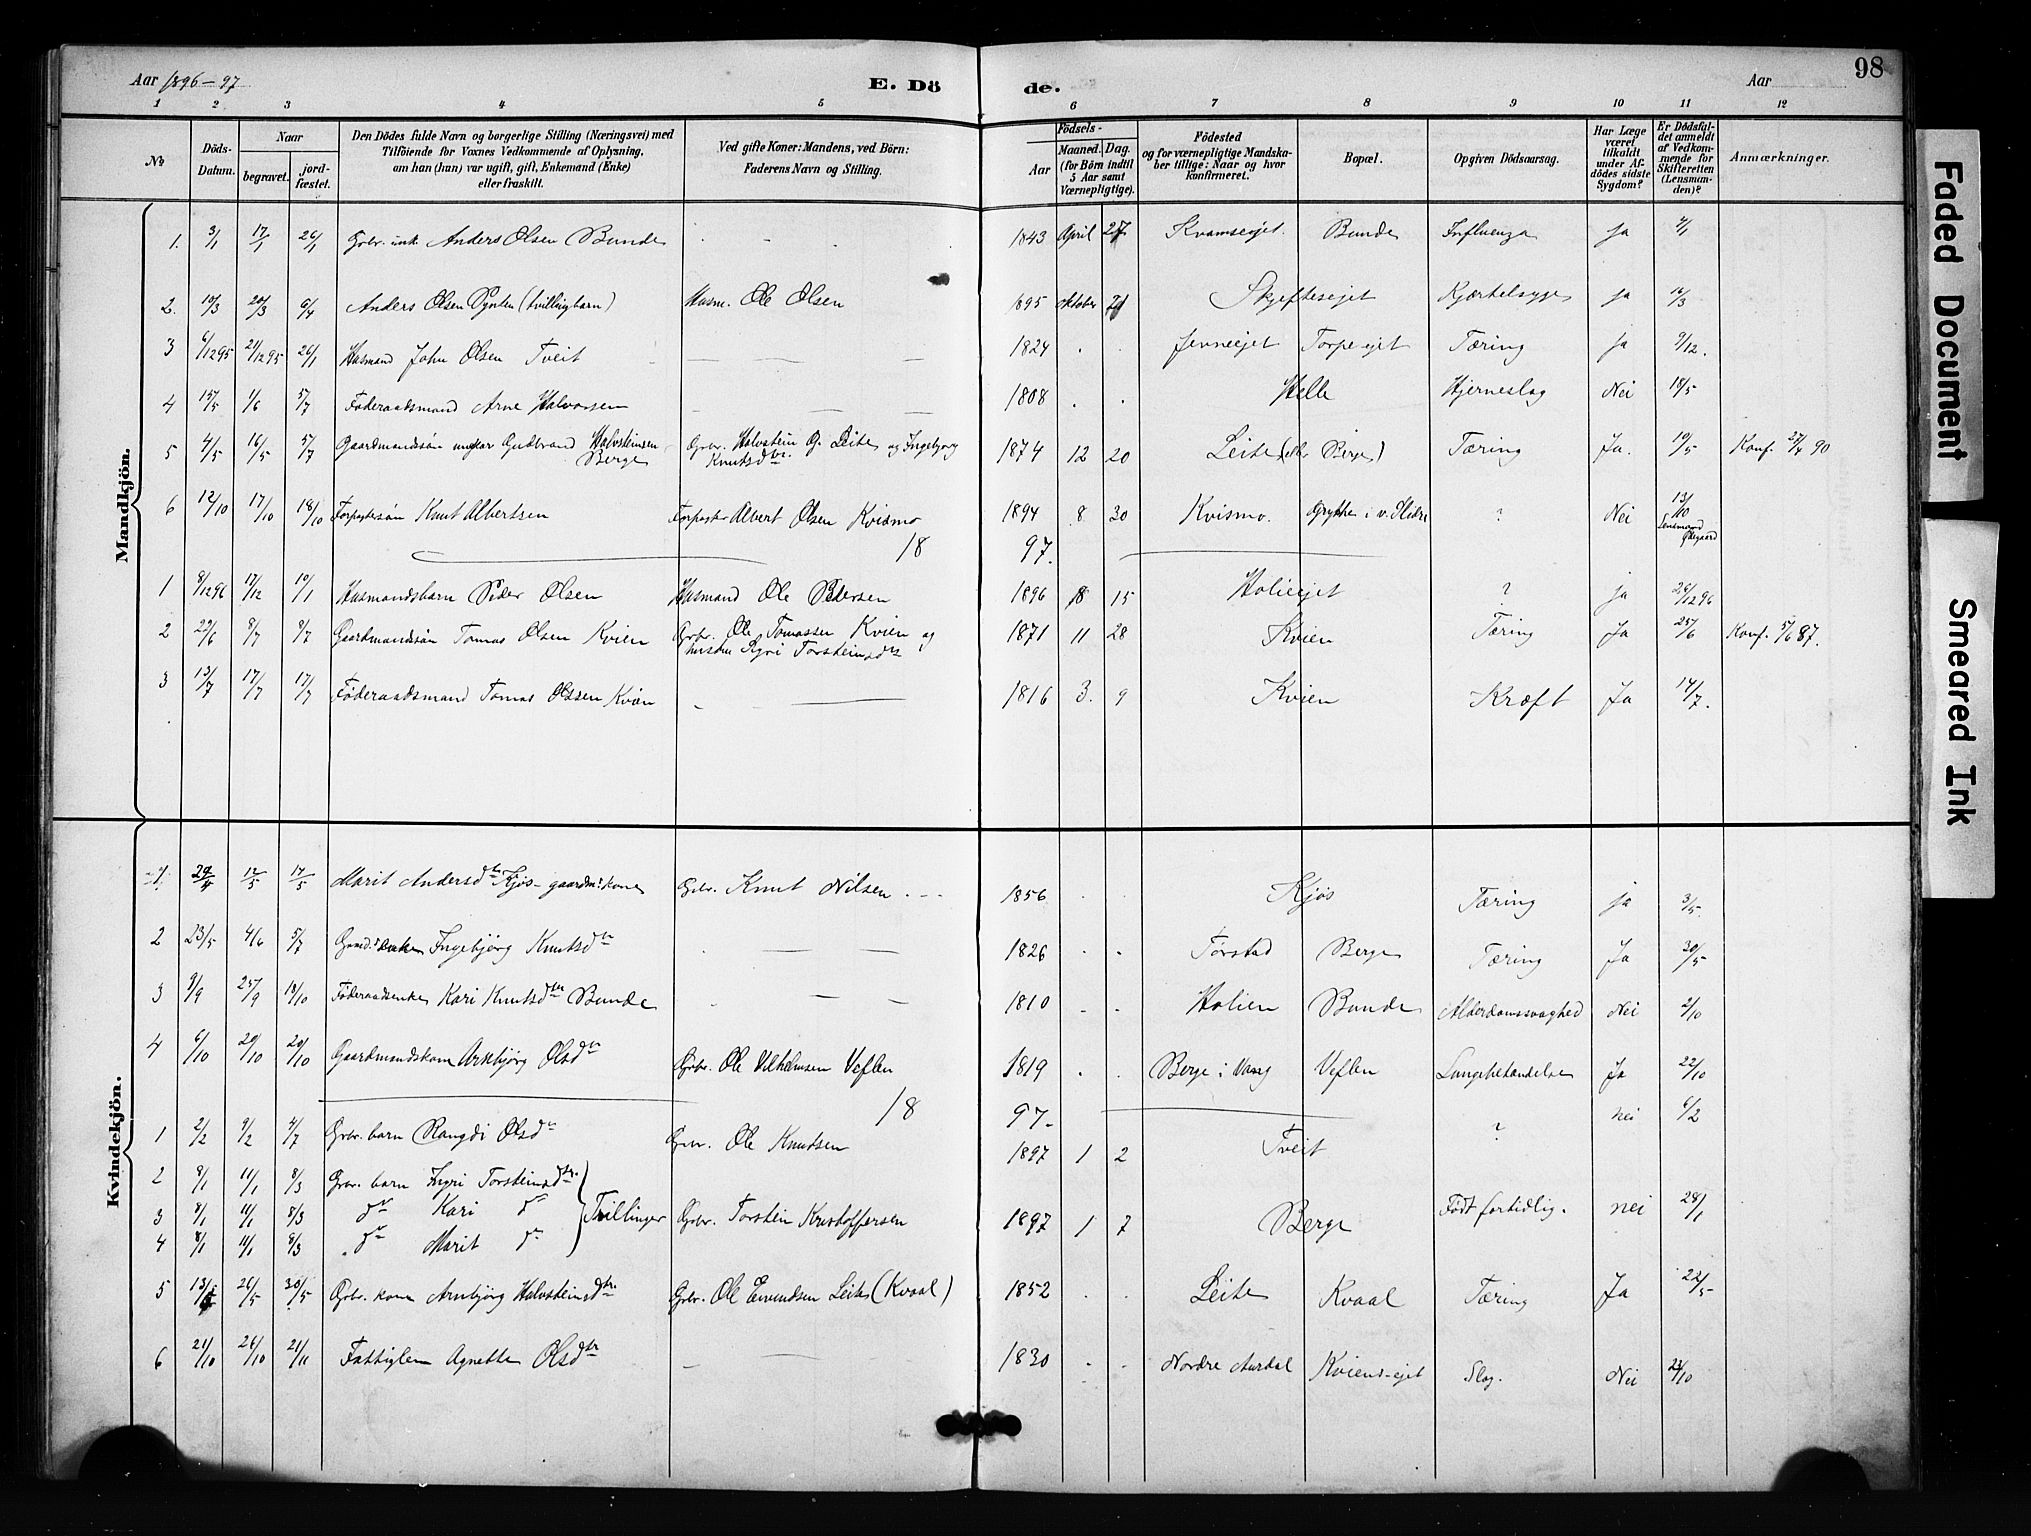 Aar 1896-97
E. Dö
de.
Aar
98
1 2 3 4 5 6 7 8 9 10 11 12
No
Döds-
Datum.
Naar
begravet.
jord-
fæstet.
Den Dödes fulde Navn og borgerlige Stilling (Næringsvei) med
Tilföiende for Voxnes Vedkommende af Oplysning,
om han (hun) var ugift, gift, Enkemand (Enke)
eller fraskilt.
Ved gifte Koner: Mandens, ved Börn:
Faderens Navn og Stilling.
Födsels-
Aar
Maaned. Dag.
(for Börn indtil
5 Aar samt
Værnepligtige).
Födested
og for værnepligtige Mandska-
ber tillige: Naar og hvor
konfirmeret.
Bopæl.
Opgiven Dödsaarsag.
Har Læge
været
tilkaldt
under Af-
dödes sidste
Sygdom?
Er Dödsfal-
det anmeldt
af Vedkom-
mende for
Skifteretten
(Lensman-
den)?
Anmærkninger.
Mandkjön.
1. 3/1 17/1 26/1 Grbr. unk. Anders Olsen Bunde - - - 1843 April 27 Kvamsejet Bunde Influenza ja 4/1
2. 10/3 20/3 9/4 Anders Olsen (tvillingbarn) Husm. Ole Olsen 1895 Oktober Skjeftesejet Kjertelsyge ja 14/3
3 6/12 95 21/12 95 26/1 Husmand John Olsen Tveit — — — 1824 . . Jevneejet Torpe ejet Tæring ja 9/12.
4 15/5 1/6 5/7 Føderaadsmand Arne Halvorsen — — — 1808 . . Helle Hjerneslag Nei 18/5
5 4/5 16/5 5/7 Gaardmandssøn ungkar Gudbrand Halvsteinsen Berge Grbr. Halvstein G. Leite og Ingebjørg Knutsdtr. 1874 12 20 Leite (elr Berge) Tæring Ja. 19/5 Konf. 27/4 90
6 12/10 17/10 18/10 Forpagtersøn Knut Albertsen Forpagter Albert Olsen Kvismo 1894 8 30 Kvismo. i v. Slidre ? Nei 13/10 Lensmand Ødegaard
1897.
1 8/12 96 17/12 10/1 Husmandsbarn Peder Olsen Husmand Ole Pedersen 1896 8 15 Holieejet ? ja 26/12 96
2 22/6 8/7 8/7 Gaardmandssøn Tomas Olsen Kvien Grbr. Ole Tomassen Kvien og hustru Sigri Torsteinsdtr 1871 11 28 Kvien Tæring Ja 25/6 Konf. 5/6 87.
3 13/7 17/7 17/7 Føderaadsmand Tomas Olsen Kvien — — 1816 3. 9 Kvien Kræft Ja 14/7.
Kvindekjön.
1. 29/4 12/5 17/5 Marit Andersdtr Kjøs - gaardm.kone Grbr. Knut Nilsen . - - 1856 . . Kjøs Tæring ja 3/5.
2 23/5 4/6 5/7 Gmd.s enke Ingebjørg Knutsdtr — — 1826 . . Tørstad Berge Tæring Ja 30/5
3 9/9 25/9 18/10 Føderaadsenke Kari Knutsdtr Bunde . — — 1810 . . Holien Bunde Alderdomssvaghed Nei 2/10
4 6/10 20/10 20/10 Gaardmandskone Arnbjørg Olsdtr Grbr. Ole Vilhelmsen Veflen 1819 . . Berge i Vang Veflen Lungebetændelse Ja 22/10
1897.
1 2/2 9/2 4/7 Grbr. barn Rangdi Olsdtr Grbr. Ole Knudsen 1897 1 2 Tveit ? nei 6/2
2 8/1 11/1 8/3 Grbr. barn Ingri Torsteinsdtr.
3 8/1 11/1 8/3 do Kari do Trillinger Grbr. Torstein Kristoffersen 1897 1 7 Berge Født fortidlig. nei 28/1
4 8/1 11/1 8/3 do Marit do
5 13/5 26/5 30/5 Grbr. kone Arnbjørg Halvsteinsdtr. Grbr. Ole Eivindsen Leite (Kvaal) 1852 . . Leite Kvaal Tæring Ja 22/5
6 21/10 26/10 21/11 Fattiglem Agnette Olsdtr — — 1830 . . Nordre Aurdal Kviensejet Slag. Nei 24/10
Faded Document
Smeared Ink